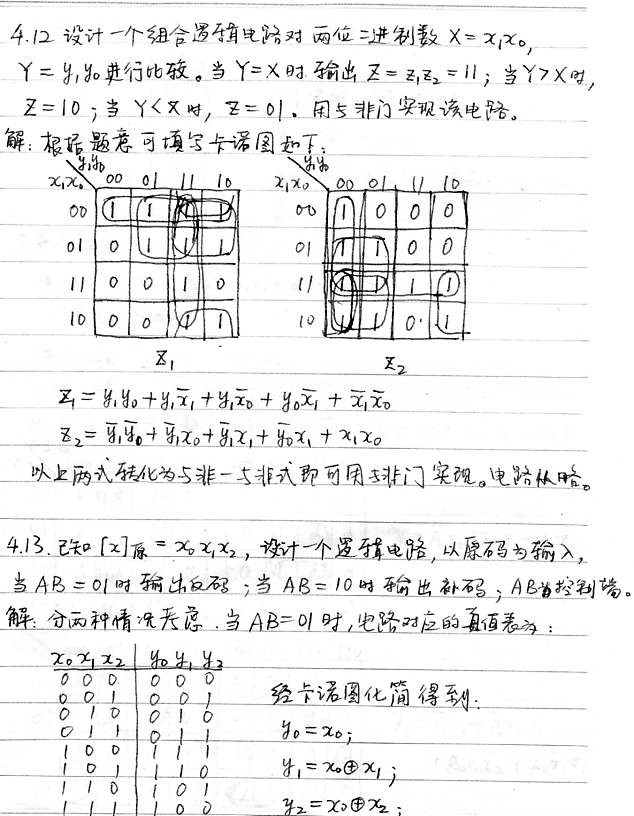 4.12 设计一个组合逻辑电路对两位二进制数 X = x₁x₀,
Y = y₁y₀ 进行比较。当 Y = X 时输出 Z = z₁z₂ = 11；当 Y > X 时,
Z = 10；当 Y < X 时, Z = 01。用与非门实现该电路。
解: 根据题意可填写卡诺图如下:
y₁y₀ y₁y₀
x₁x₀ 00 01 11 10 x₁x₀ 00 01 11 10
00 1 1 1 1 00 1 0 0 0
01 0 1 1 1 01 1 1 0 0
11 0 0 1 0 11 1 1 1 1
10 0 0 1 1 10 1 1 0 1
Z₁ Z₂
Z₁ = y₁y₀ + y₁x̄₁ + y₁x̄₀ + y₀x̄₁ + x̄₁x̄₀
Z₂ = ȳ₁ȳ₀ + ȳ₁x₀ + ȳ₁x₁ + ȳ₀x₁ + x₁x₀
以上两式转化为与非－与非式即可用与非门实现。电路从略。
4.13. 已知 [x]原 = x₀x₁x₂, 设计一个逻辑电路, 以原码为输入,
当 AB = 01 时输出反码；当 AB = 10 时输出补码；AB为控制端。
解: 分两种情况考虑. 当 AB = 01 时, 电路对应的真值表为:
x₀ x₁ x₂ y₀ y₁ y₂
0 0 0 0 0 0
0 0 1 0 0 1 经卡诺图化简得到:
0 1 0 0 1 0
0 1 1 0 1 1 y₀ = x₀;
1 0 0 1 1 1
1 0 1 1 1 0 y₁ = x₀⊕x₁;
1 1 0 1 0 1
1 1 1 1 0 0 y₂ = x₀⊕x₂;